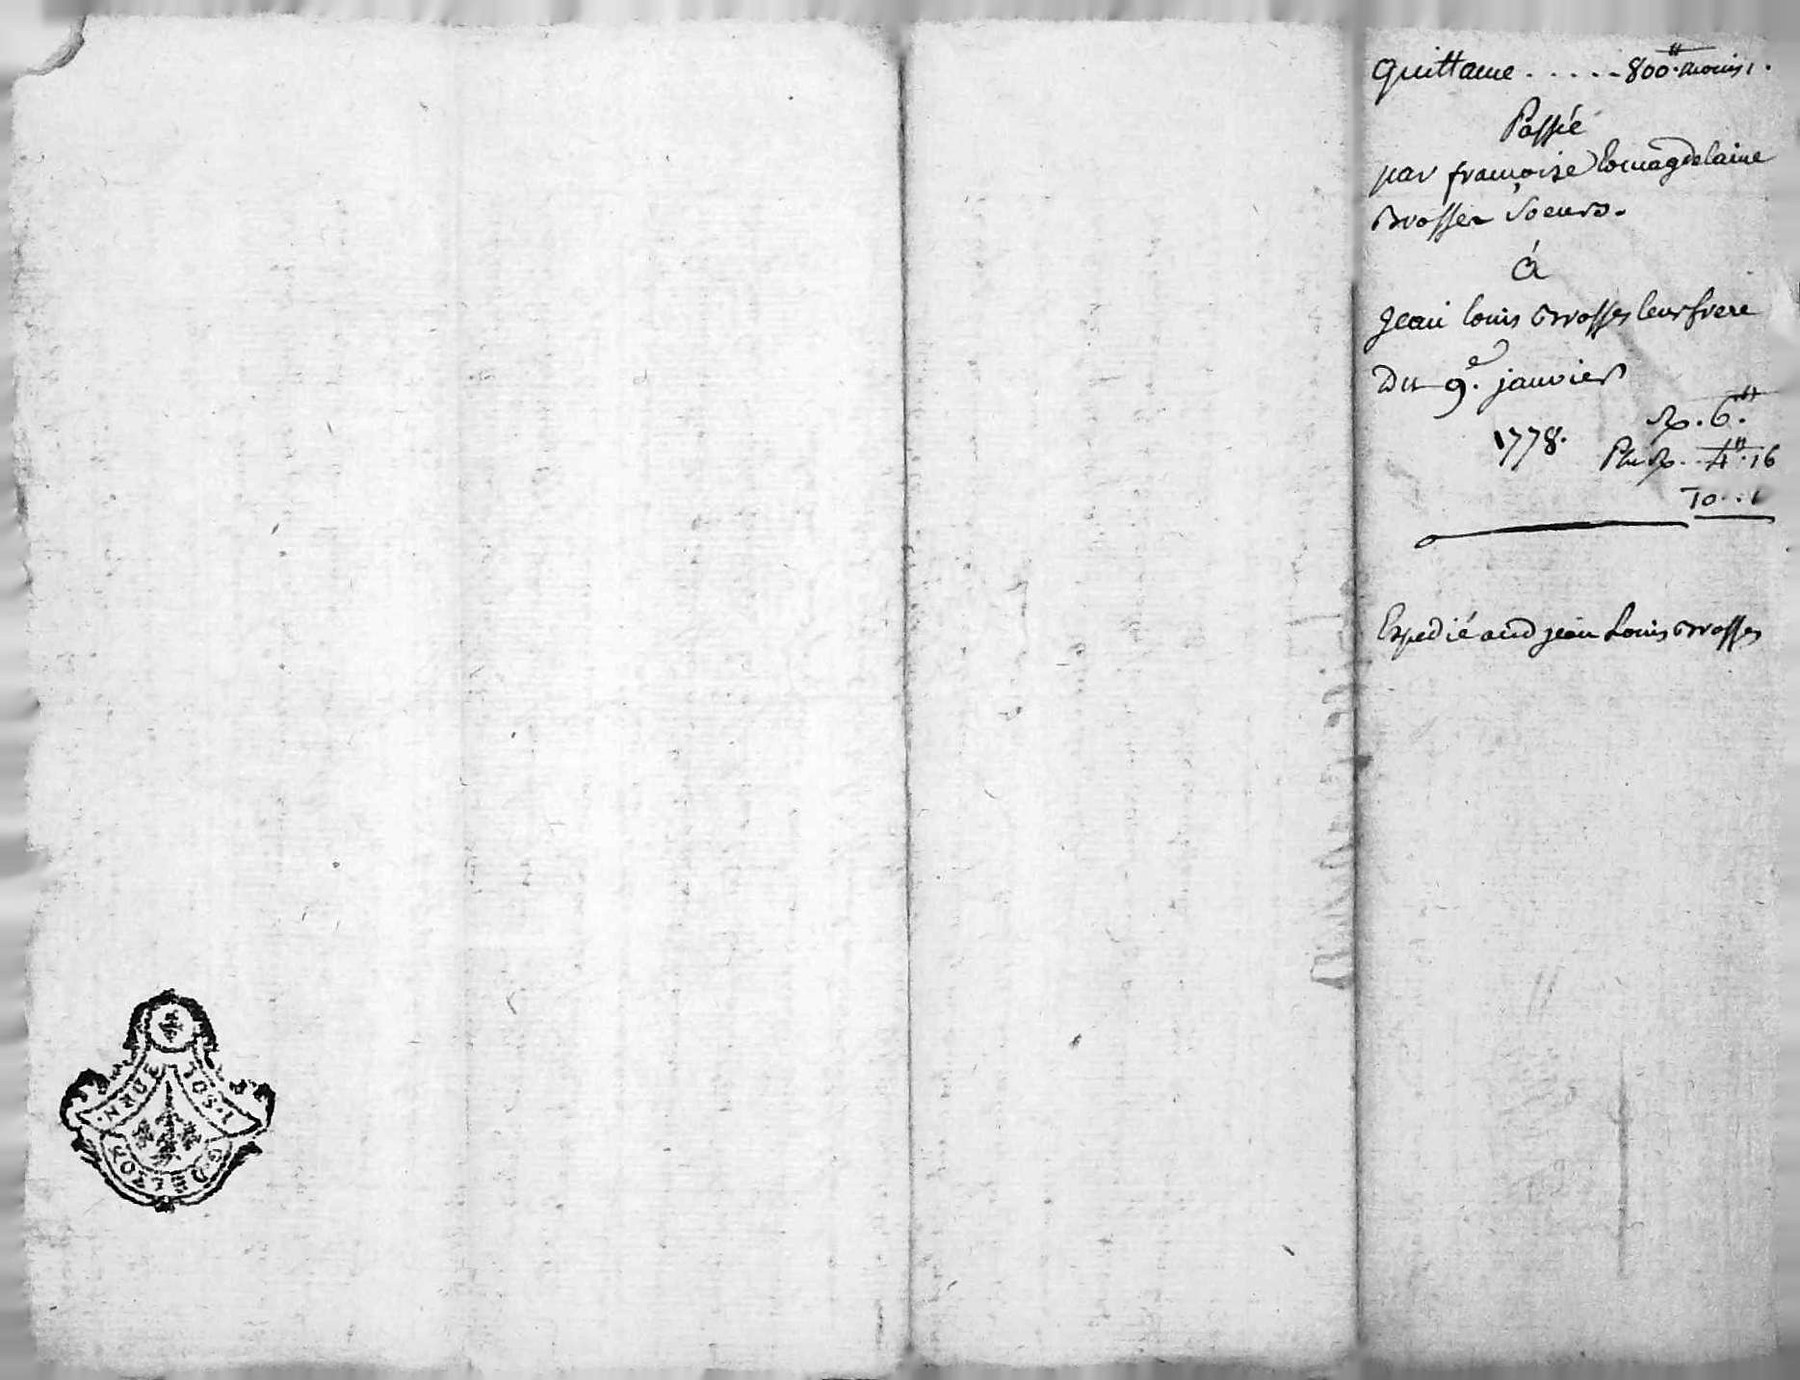 Quittance . . . . . 800.# moins 1.
Passée
par françoise & magdelaine
Brosses Soeurs.
à
Jean louis Brosses leur frere
Du 9.e janvier
1778. Rx. 6.#
Plus Rx. 4.# 16
10 . .
Expedié aud jean Louis Brosses
1. SOL
G. DE LYON